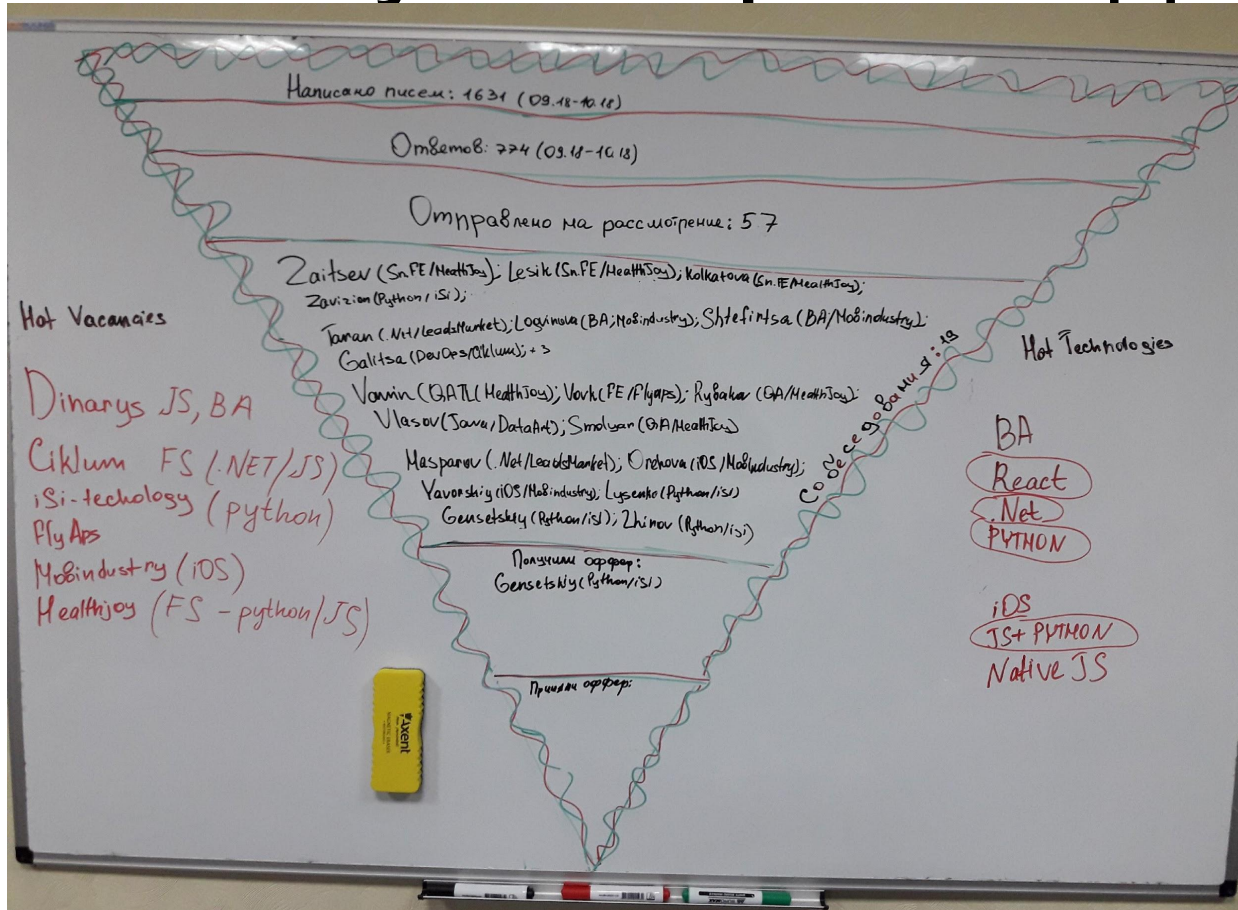 Написано писем: 1631 (09.18-10.18)
Ответов: 774 (09.18-10.18)
Отправлено на рассмотрение: 57
Zaitsev (Sn.FE/HealthJoy); Lesik (Sn.FE/HealthJoy); Kolkatova (Sn.FE/HealthJoy);
Zavizion (Python/iSi);
Taran (.Net/LeadsMarket); Logvinova (BA; Mobindustry); Shtefirtsa (BA/Mobindustry);
Galitsa (DevOps/Ciklum); +3
Vannin (QATL (HealthJoy); Vovk (FE/Flyaps); Rybakov (QA/HealthJoy);
Vlasov (Java/DataArt); Smolyan (QA/HealthJoy)
Masparov (.Net/LeadsMarket); Orehova (iOS/Mobindustry);
Yavorskiy (iOS/Mobindustry); Lysenko (Python/iSi)
Gensetskiy (Python/iSi); Zhinov (Python/iSi)
Собеседования: 19
Получили оффер:
Gensetskiy (Python/iSi)
Приняли оффер:
Hot Vacancies
Dinarys JS, BA
Ciklum FS (.NET/JS)
iSi-techology (python)
FlyAps
Mobindustry (iOS)
Healthjoy (FS - python/JS)
Hot Technologies
BA
React
.Net
PYTHON
iOS
JS+ PYTHON
Native JS
Axent